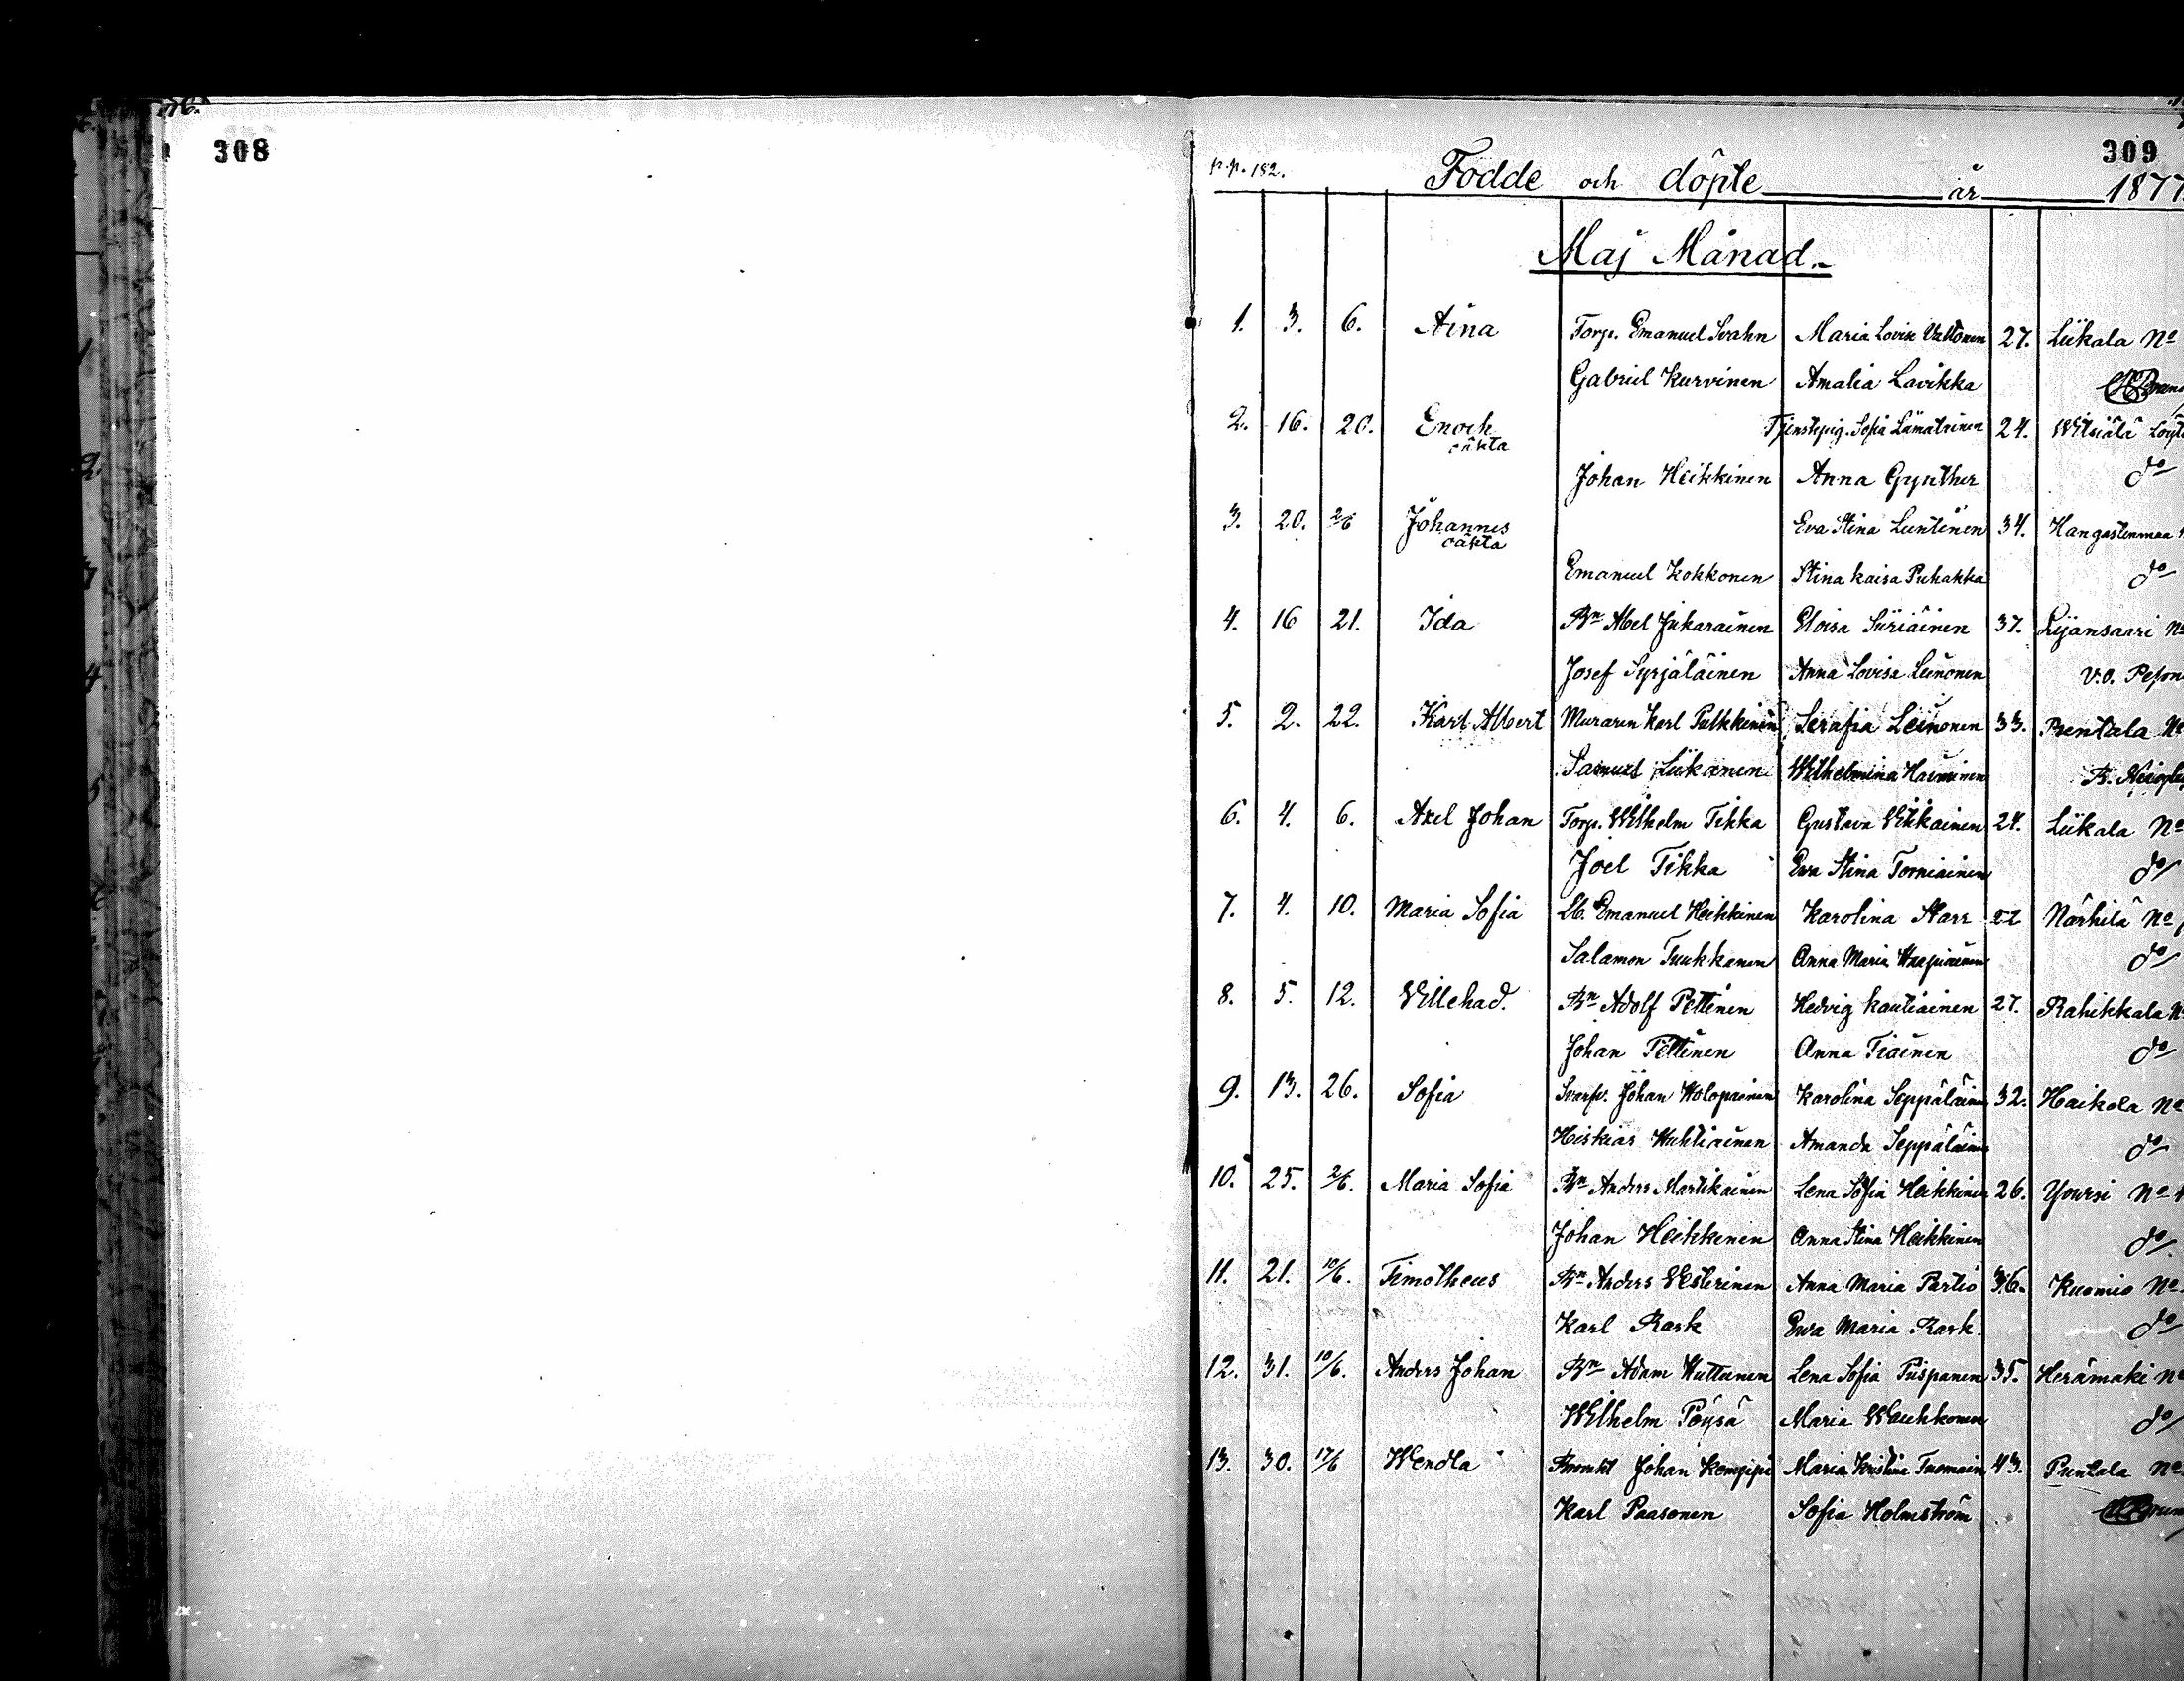 308
309
p.p. 182. Födde och döpte år 1877
Maj Månad.
1. 3. 6. Aina Torp. Emanuel Svahn Maria Lovisa Valtonen 27. Liikala No
Gabriel Kurvinen Amalia Lavikka
2. 16. 20. Enoch Tjenstepig. Sofia Liimatainen 24. Witsiälä
oäkta
Johan Heikkinen Anna Gynther do
3. 20. 2/6 Johannes Eva Stina Luntinen 34. Hangastenmaa
oäkta
Emanuel Kokkonen Stina Kaisa Puhakka do
4. 16 21. Ida Bn Abel Jukarainen Eloisa Siiriäinen 37. Lijansaari No
Josef Syrjäläinen Anna Lovisa Leinonen V.O.
5. 2. 22. Karl Albert Muraren Karl Pulkkinen Serafia Leinonen 33. Pentala No
Samuel Liikanen Wilhelmina Haiminen
6. 4. 6. Axel Johan Torp. Wilhelm Tikka Gustava Vikkainen 24. Liikala No
Joel Tikka Eva Stina Torniainen do
7. 4. 10. Maria Sofia Lb. Emanuel Heikkinen Karolina Starr 22 Närhilä No
Salamon Tuukkanen Anna Maria do
8. 5. 12. Villehad. Bn Adolf Pettinen Hedvig Kautiainen 27. Rahikkala No
Johan Pettinen Anna Tiainen do
9. 13. 26. Sofia Johan Holopainen Karolina Seppäläinen 32. Haikola No
Hiskias Huhtiainen Amanda Seppäläinen do
10. 25. 2/6. Maria Sofia Bn Anders Martikainen Lena Sofia Heikkinen 26. Yövesi No
Johan Heikkinen Anna Stina Heikkinen do
11. 21. 10/6. Timotheus Bn Anders Vesterinen Anna Maria Partio 36. Kuomio No
Karl Rask Eva Maria Rask. do
12. 31. 10/6. Anders Johan Bn Adam Huttunen Lena Sofia Piispanen 35. Herämäki No
Wilhelm Pöysä Maria Wauhkonen do
13. 30. 17/6 Wendla Johan Kemppi Maria Kristina Tuomain 43. Pentala No
Karl Paasonen Sofia Holmström